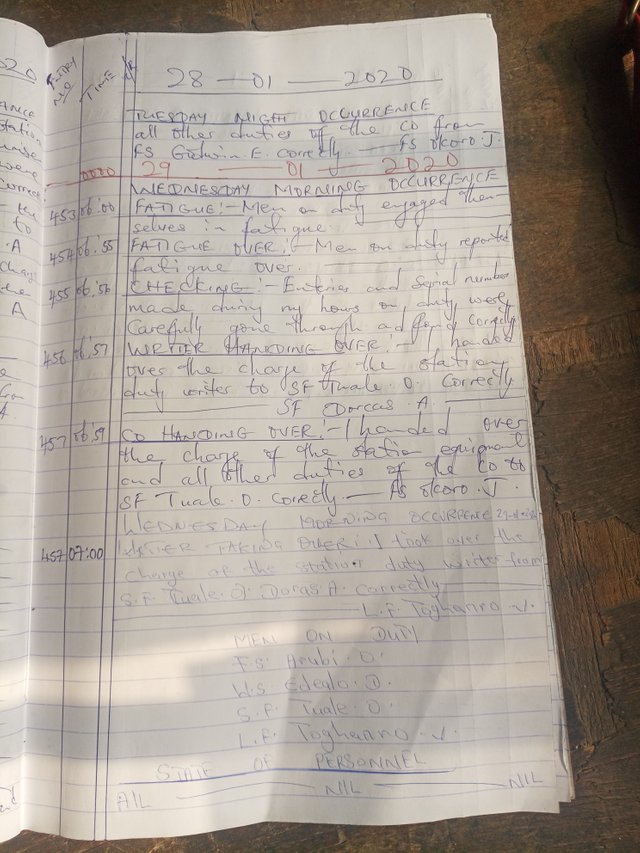 ENTRY NO
TIME HR
28 — 01 — 2020
TUESDAY NIGH OCCURRENCE
all other duties of the CO from
FS Godwin. E. Correctly. — FS Okoro J.
0000 29 — 01 — 2020
WEDNESDAY MORNING OCCURRENCE
453 06:00 FATIGUE:- Men on duty engaged them
selves in fatigue.
454 06:55 FATIGUE OVER:- Men on duty reported
fatigue over.
455 06:56 CHECKING:- Entries and Serial number
made during my hours on duty were
Carefully gone through ad found correctly
456 06:57 WRITER HANDING OVER:- I handed
over the charge of the station
duty writer to SF Tuale. O. Correctly
SF Dorcas. A.
457 06:59 CO HANDING OVER:- I handed over
the charge of the station equipment
and all other duties of the CO to
SF Tuale. O. Correctly. — FS Okoro. J.
WEDNESDAY MORNING OCCURRENCE
457 07:00 WRITER TAKING OVER:- I took over the
charge of the station duty writer from
S.F. Tuale. O. Doras A. correctly
L.F. Toghanro. V.
MEN ON DUTY
F.S. Arubi. O.
W.S. Edealo. O.
S.F. Tuale. O.
L.F. Toghanro. V.
STATE OF PERSONNEL
A/L — NIL — NIL